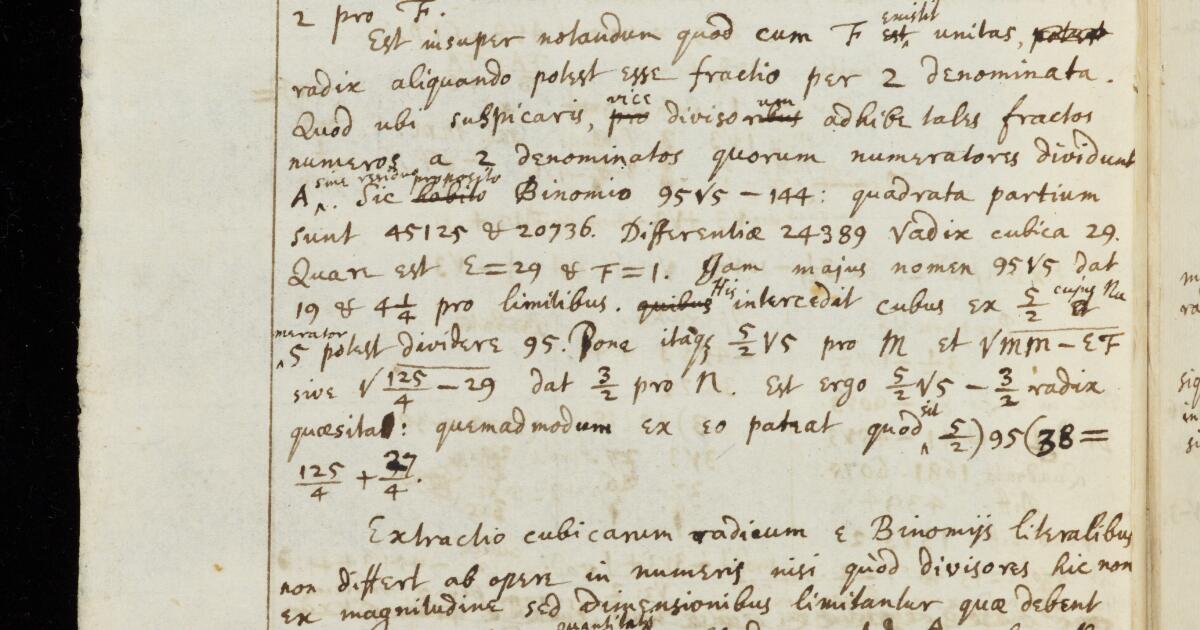 2 pro F.
Est insuper notandum quod cum F est existit unitas, potest
radix aliquando potest esse fractio per 2 denominata.
Quod ubi suspicaris, pro vice divisoribus um adhibe tales fractos
numeros a 2 denominatos quorum numeratores dividunt
A sine residuo. Sic habito proposito Binomio 95√5 − 144: quadrata partium
sunt 45125 & 20736. Differentiæ 24389 radix cubica 29.
Quare est E=29 & F=1. Jam majus nomen 95√5 dat
19 & 4 1/4 pro limitibus. quibus His intercedit cubus ex 5/2 cujus Nu
merator 5 potest dividere 95. Pone itaqꝫ 5/2√5 pro M et √MM − EF
sive √125/4 − 29 dat 3/2 pro N. Est ergo 5/2√5 − 3/2 radix
quæsita: quemadmodum ex eo pateat quod sit 5/2)95(38=
125/4 + 27/4.
Extractio cubicarum radicum e Binomijs literalibus
non differt ab opere in numeris nisi quòd divisores hic non
ex magnitudine sed dimensionibus limitantur quæ debent
quantitatis